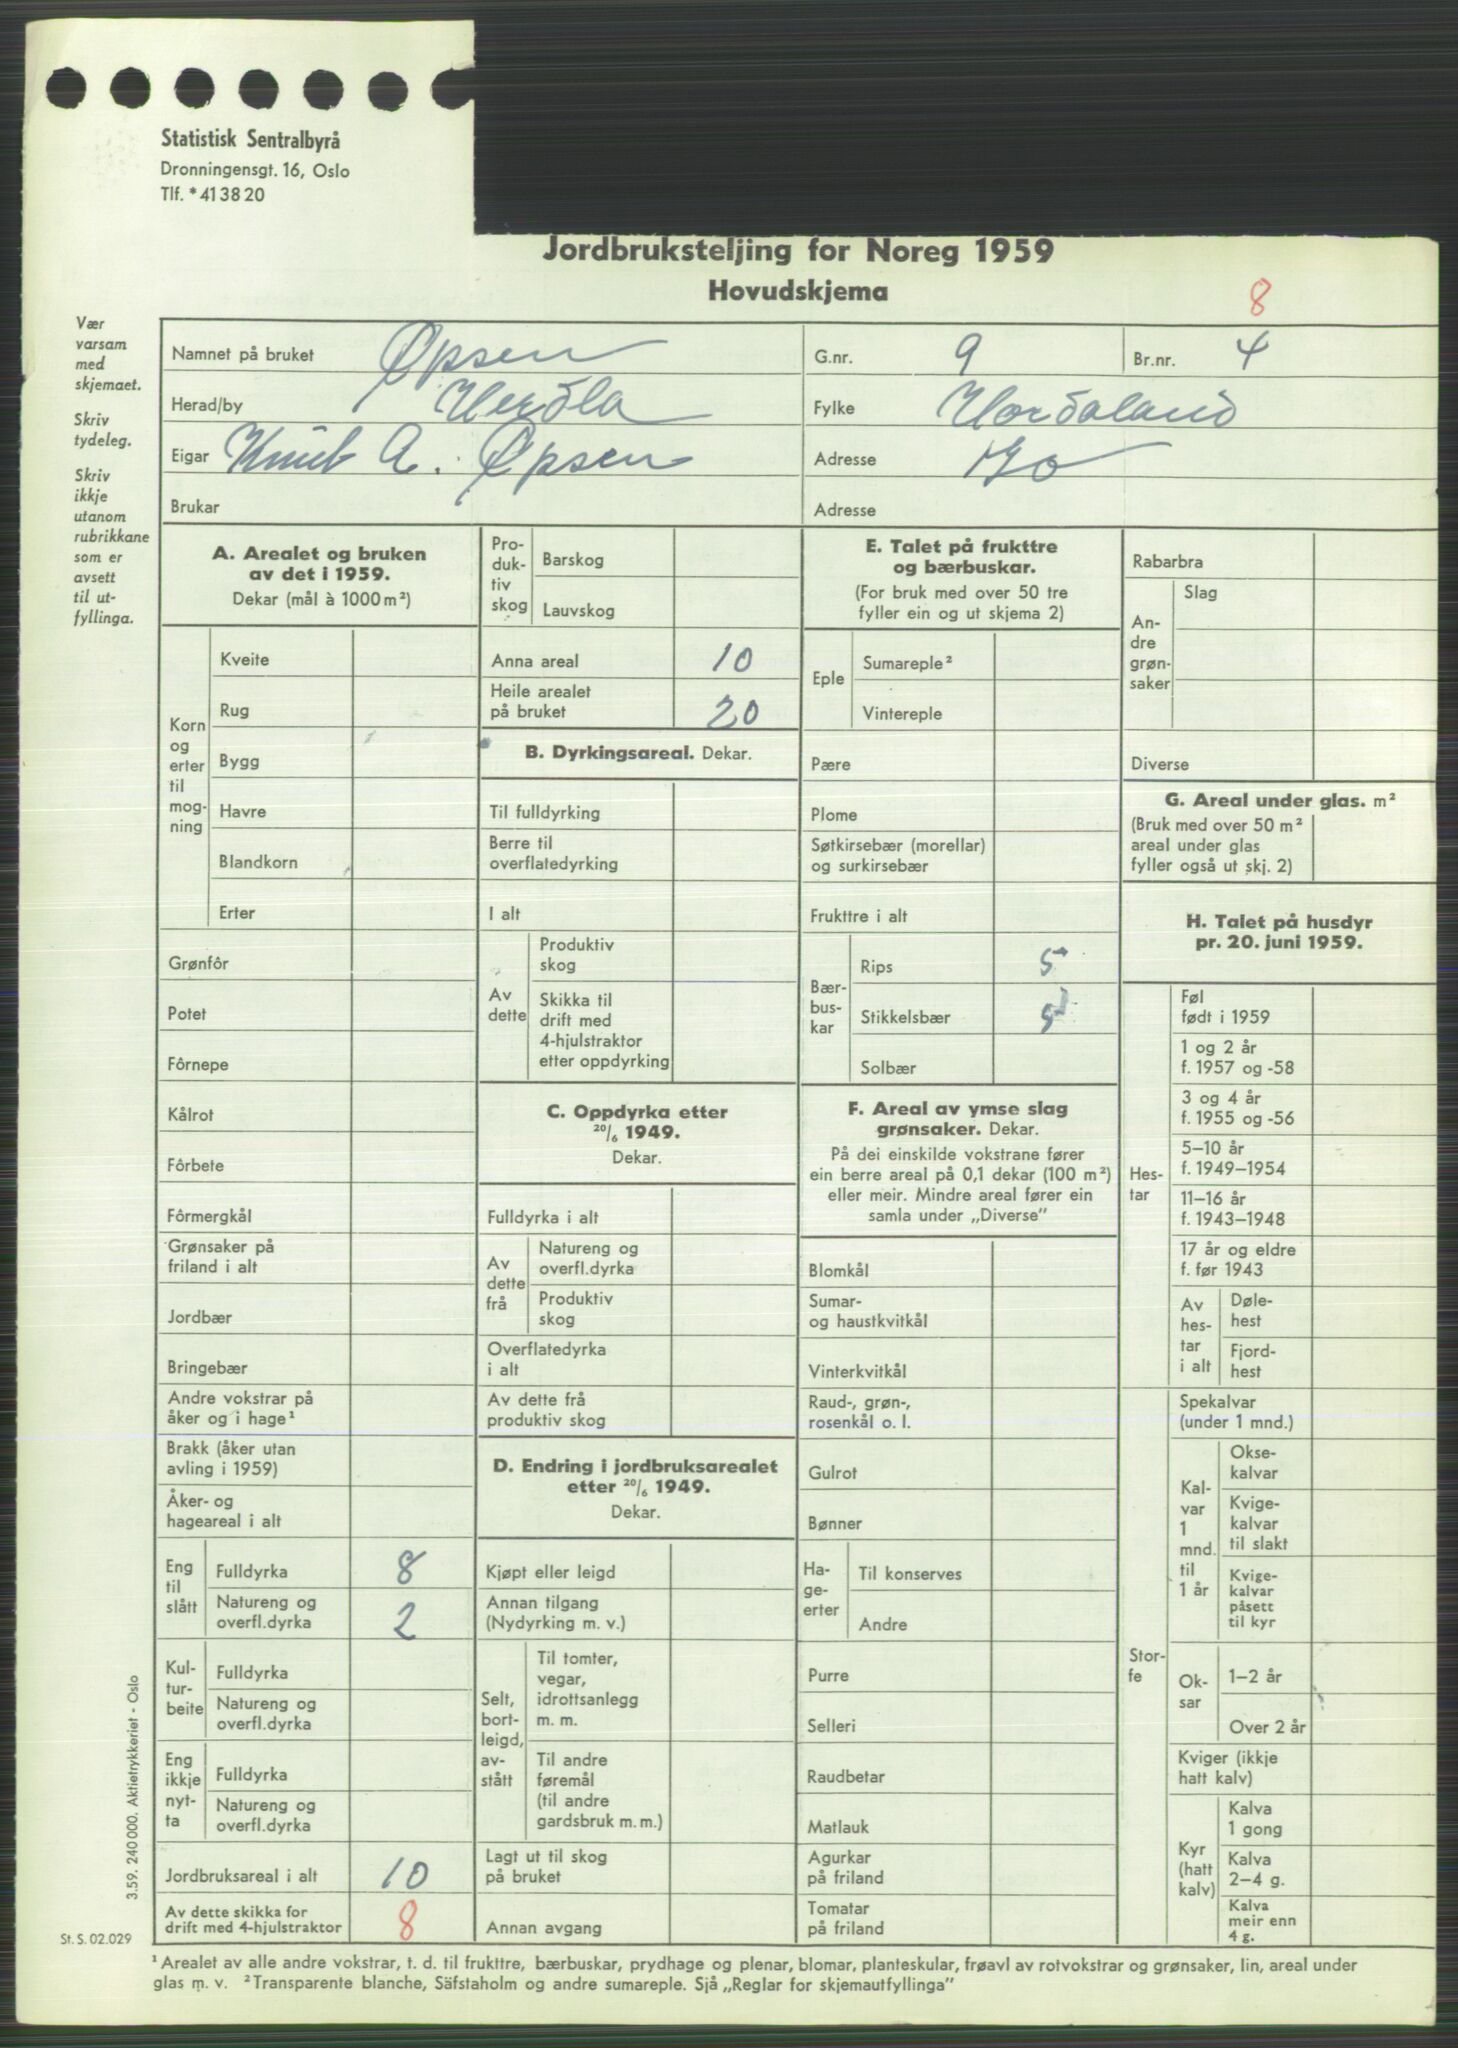 Statistisk Sentralbyrå
Dronningensgt. 16, Oslo
Tlf. *41 38 20
Jordbruksteljing for Noreg 1959
Hovudskjema
8
Vær
varsam
med
skjemaet.
Skriv
tydeleg.
Skriv
ikkje
utanom
rubrikkane
som er
avsett
til ut-
fyllinga.
Namnet på bruket Øpsen G.nr. 9 Br.nr. 4
Herad/by Herdla Fylke Hordaland
Eigar Knut A. Øpsen Adresse
Brukar Adresse
A. Arealet og bruken
av det i 1959.
Dekar (mål à 1000 m²)
Korn
og
erter
til
mog-
ning
Kveite
Rug
Bygg
Havre
Blandkorn
Erter
Grønfôr
Potet
Fôrnepe
Kålrot
Fôrbete
Fôrmergkål
Grønsaker på
friland i alt
Jordbær
Bringebær
Andre vokstrar på
åker og i hage¹
Brakk (åker utan
avling i 1959)
Åker- og
hageareal i alt
Eng
til
slått
Fulldyrka 8
Natureng og
overfl.dyrka 2
Kul-
tur-
beite
Fulldyrka
Natureng og
overfl.dyrka
Eng
ikkje
nyt-
ta
Fulldyrka
Natureng og
overfl.dyrka
Jordbruksareal i alt 10
Av dette skikka for
drift med 4-hjulstraktor 8
Pro-
duk-
tiv
skog
Barskog
Lauvskog
Anna areal 10
Heile arealet
på bruket 20
B. Dyrkingsareal. Dekar.
Til fulldyrking
Berre til
overflatedyrking
I alt
Av
dette
Produktiv
skog
Skikka til
drift med
4-hjulstraktor
etter oppdyrking
C. Oppdyrka etter
20/6 1949.
Dekar.
Fulldyrka i alt
Av
dette
frå
Natureng og
overfl.dyrka
Produktiv
skog
Overflatedyrka
i alt
Av dette frå
produktiv skog
D. Endring i jordbruksarealet
etter 20/6 1949.
Dekar.
Kjøpt eller leigd
Annan tilgang
(Nydyrking m. v.)
Selt,
bort-
leigd,
av-
stått
Til tomter,
vegar,
idrottsanlegg
m. m.
Til andre
føremål
(til andre
gardsbruk m. m.)
Lagt ut til skog
på bruket
Annan avgang
E. Talet på frukttre
og bærbuskar.
(For bruk med over 50 tre
fyller ein og ut skjema 2)
Eple
Sumareple²
Vintereple
Pære
Plome
Søtkirsebær (morellar)
og surkirsebær
Frukttre i alt
Bær-
bus-
kar
Rips 5
Stikkelsbær 5
Solbær
F. Areal av ymse slag
grønsaker. Dekar.
På dei einskilde vokstrane fører
ein berre areal på 0,1 dekar (100 m²)
eller meir. Mindre areal fører ein
samla under „Diverse”
Blomkål
Sumar-
og haustkvitkål
Vinterkvitkål
Raud-, grøn-,
rosenkål o. l.
Gulrot
Bønner
Ha-
ge-
erter
Til konserves
Andre
Purre
Selleri
Raudbetar
Matlauk
Agurkar
på friland
Tomatar
på friland
Rabarbra
An-
dre
grøn-
saker
Slag
Diverse
G. Areal under glas. m²
(Bruk med over 50 m²
areal under glas
fyller også ut skj. 2)
H. Talet på husdyr
pr. 20. juni 1959.
Hes-
tar
Føl
født i 1959
1 og 2 år
f. 1957 og -58
3 og 4 år
f. 1955 og -56
5–10 år
f. 1949–1954
11–16 år
f. 1943–1948
17 år og eldre
f. før 1943
Av
hes-
tar
i alt
Døle-
hest
Fjord-
hest
Stor-
fe
Spekalvar
(under 1 mnd.)
Kal-
var
1
mnd.
til
1 år
Okse-
kalvar
Kvige-
kalvar
til slakt
Kvige-
kalvar
påsett
til kyr
Ok-
sar
1–2 år
Over 2 år
Kviger (ikkje
hatt kalv)
Kyr
(hatt
kalv)
Kalva
1 gong
Kalva
2–4 g.
Kalva
meir enn
4 g.
3.59. 240 000. Aktietrykkeriet - Oslo
St. S. 02.029
¹ Arealet av alle andre vokstrar, t. d. til frukttre, bærbuskar, prydhage og plenar, blomar, planteskular, frøavl av rotvokstrar og grønsaker, lin, areal under
glas m. v. ² Transparente blanche, Säfstaholm og andre sumareple. Sjå „Reglar for skjemautfyllinga”